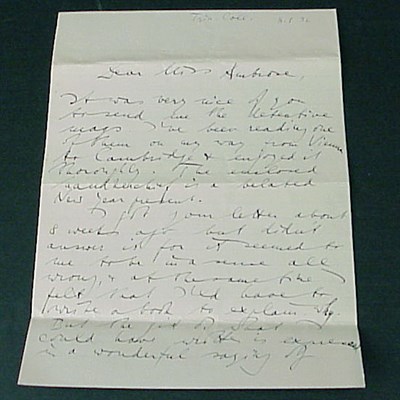 Trin. Coll.
Dear Miss Ambrose,
It was very nice of you
to send me the detective
mags I've been reading one
of them on my way from Vienna
to Cambridge & enjoyed it
thoroughly. The enclosed
handkerchief is a belated
New Year present.
I got your letter about
8 weeks ago but didn't
answer it for it seemed to
me to be in a sense all
wrong, & at the same time I
felt that I'd have to
write a book to explain why.
But the gist of what I
could have written is expressed
in a wonderful saying of